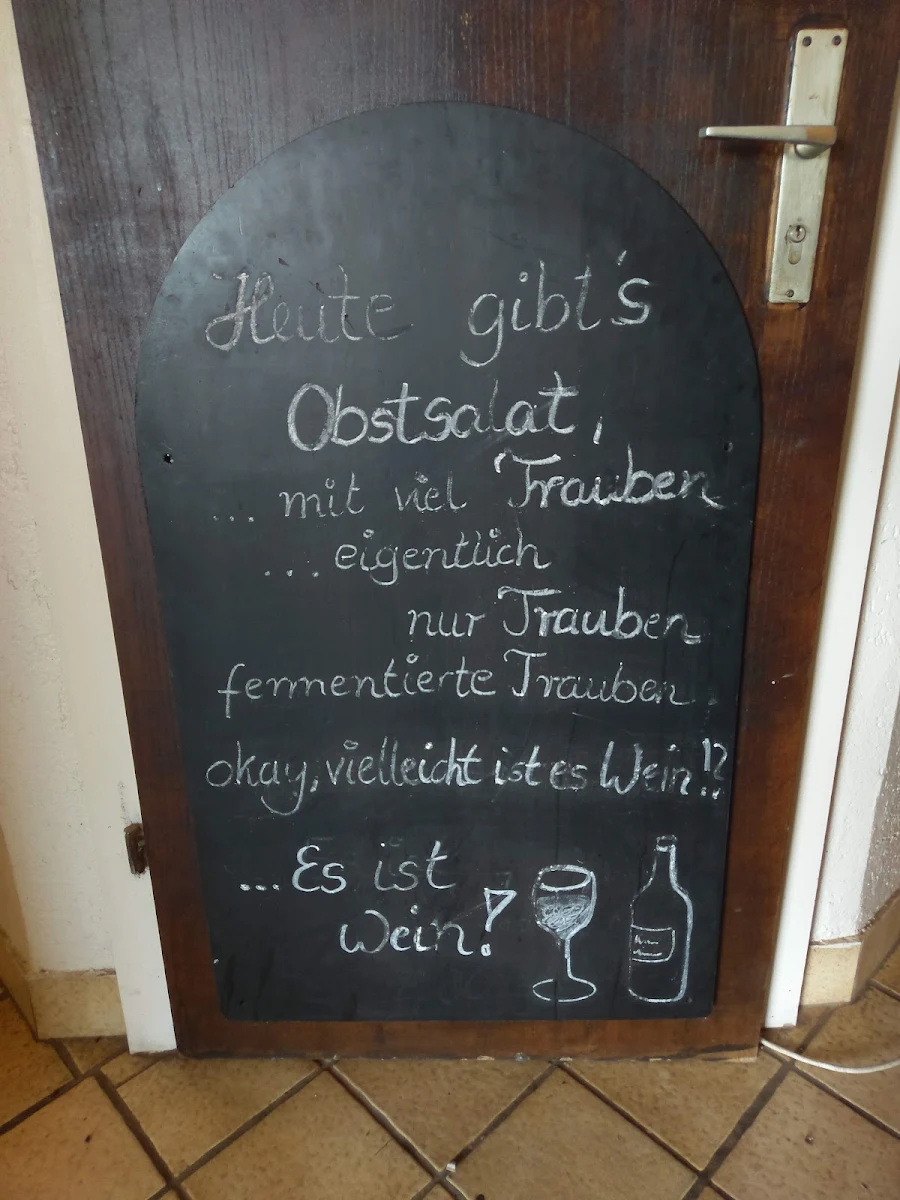 Heute gibt's
Obstsalat,
... mit viel Trauben
... eigentlich
nur Trauben
fermentierte Trauben.
okay, vielleicht ist es Wein!?
... Es ist
Wein!